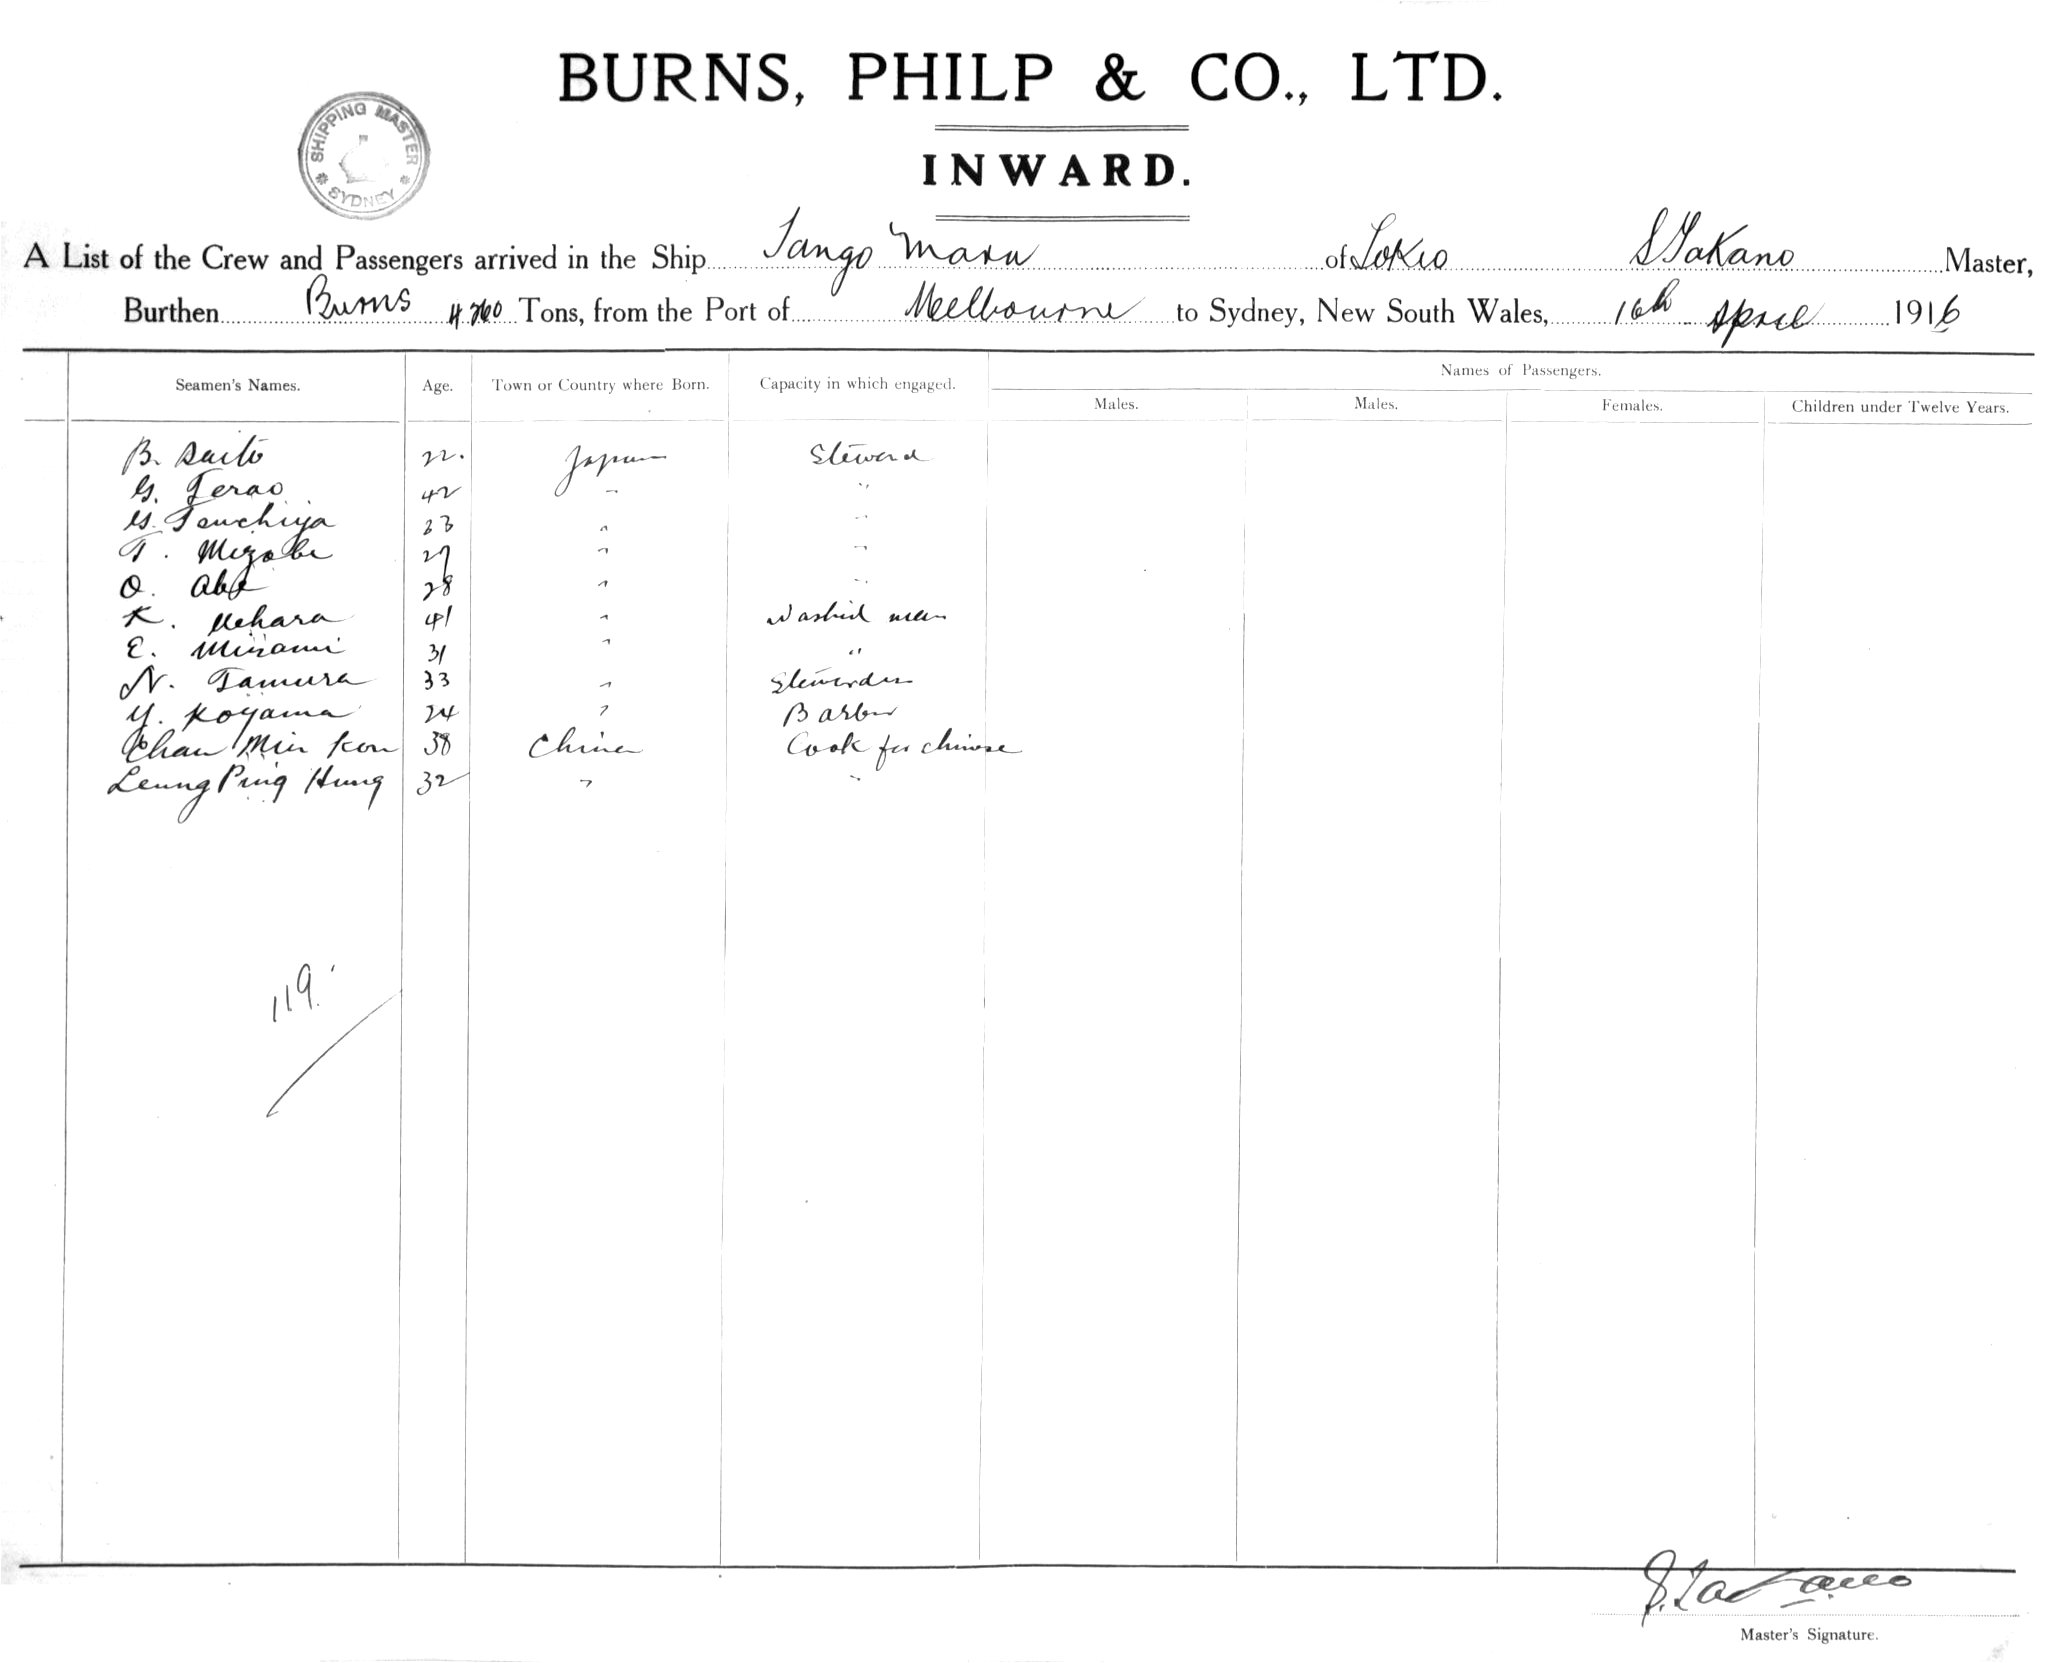 BURNS, PHILP & CO., LTD.
SHIPPING MASTER
SYDNEY
INWARD.
A List of the Crew and Passengers arrived in the Ship Tango Maru of Tokio S Takano Master,
Burthen Burns 4760 Tons, from the Port of Melbourne to Sydney, New South Wales, 16th April 1916
Seamen's Names. Age. Town or Country where Born. Capacity in which engaged. Names of Passengers.
Males. Males. Females. Children under Twelve Years.
B. Saito 22. Japan Steward
G. Terao 42 " "
Tsuchiya 33 " "
T. Mizobe 27 " "
O. Abe 28 " "
K. Uehara 41 " Washid man
E. Minami 31 " "
N. Tamura 33 " Stewardes
Y. Koyama 24 " Barber
Chan Min Kon 38 China Cook for chinese
Leung Ping Hung 32 " "
119.
S. Takano
Master's Signature.